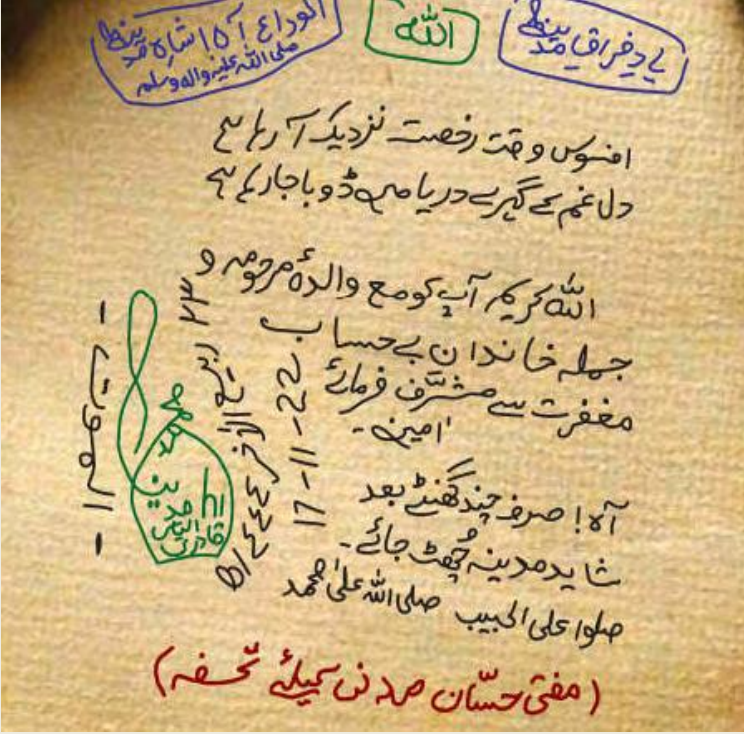 یادِ فراقِ مدینہ
اللہ
الوداع آہ! شاہِ مدینہ
صلی اللہ علیہ والہ وسلم
افسوس وقت رخصت نزدیک آ رہا ہے
دل غم کے گہرے دریا میں ڈوبا جا رہا ہے
اللہ کریم آپ کو مع والدۂ مرحومہ و
جملہ خاندان بے حساب
مغفرت سے مشرّف فرمائے
امین۔
آہ! صرف چند گھنٹے بعد
شاید مدینہ چُھٹ جائے۔
صلوا علی الحبیب صلی اللہ علیٰ محمد
17-11-22
۲۳ ربیع الآخر ۱۴۴۴ھ
محمد
الیاس
قادری
(مفتی حسّان مدنی کیلئے تحفہ)